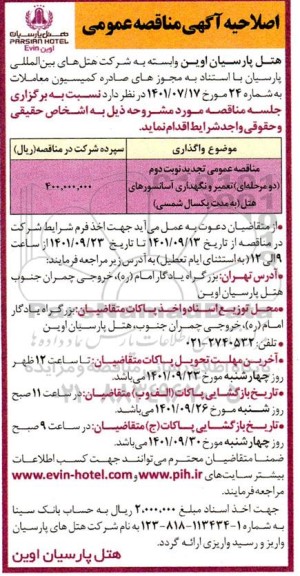 هتل پارسیان
PARSIAN HOTEL
اوین Evin
اصلاحیه آگهی مناقصه عمومی
هتل پارسیان اوین وابسته به شرکت هتل‌های بین‌المللی
پارسیان با استناد به مجوز های صادره کمیسیون معاملات
به شماره ۲۴ مورخ ۱۴۰۱/۰۷/۱۷ در نظر دارد نسبت به برگزاری
جلسه مناقصه مورد مشروحه ذیل به اشخاص حقیقی
و حقوقی واجد شرایط اقدام نماید.
موضوع واگذاری
سپرده شرکت در مناقصه (ریال)
مناقصه عمومی تجدید نوبت دوم
(دو مرحله‌ای) تعمیر و نگهداری آسانسورهای
هتل (به مدت یکسال شمسی)
۴۰۰,۰۰۰,۰۰۰
• از متقاضیان دعوت به عمل می‌آید جهت اخذ فرم شرایط شرکت
در مناقصه از تاریخ ۱۴۰۱/۰۹/۱۳ تا تاریخ ۱۴۰۱/۰۹/۲۳ از ساعت
۹ الی ۱۲ (به استثنای ایام تعطیل) به آدرس زیر مراجعه فرمایند:
• آدرس تهران: بزرگراه یادگار امام (ره)، خروجی چمران جنوب
هتل پارسیان اوین
• محل توزیع اسناد و اخذ پاکات متقاضیان: بزرگراه یادگار
امام (ره)، خروجی چمران جنوب، هتل پارسیان اوین
• تلفن: ۲۷۴۰۵۳۳-۰۲۱
• آخرین مهلت تحویل پاکات متقاضیان: تا ساعت ۱۲ ظهر
روز چهارشنبه مورخ ۱۴۰۱/۰۹/۲۳ می‌باشد.
• تاریخ بازگشایی پاکات (الف و ب) متقاضیان: در ساعت ۱۱ صبح
روز شنبه مورخ ۱۴۰۱/۰۹/۲۶ می‌باشد.
• تاریخ بازگشایی پاکات (ج) متقاضیان: در ساعت ۹ صبح
روز چهارشنبه مورخ ۱۴۰۱/۰۹/۳۰ می‌باشد.
ضمنا متقاضیان محترم می‌توانند جهت کسب اطلاعات
بیشتر سایت‌های www.pih.ir و www.evin-hotel.com
مراجعه فرمایند.
جهت اخذ اسناد مبلغ ۲,۰۰۰,۰۰۰ ریال به حساب بانک سینا
به شماره ۱-۱۱۳۴۳۴-۸۱۸-۱۲۳ به نام شرکت هتل های پارسیان
واریز و رسید واریزی ارائه گردد.
هتل پارسیان اوین